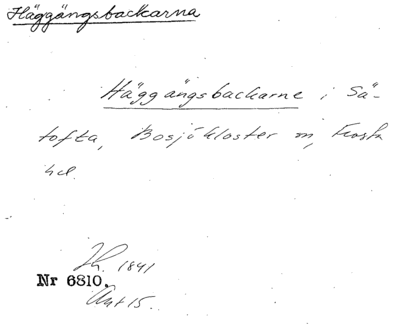 Häggängsbackarna
Häggängsbackarne i Sä-
tofta, Bosjökloster m, Frosta
hd.
Jh. 1841
Nr 6810.
Ant 15.